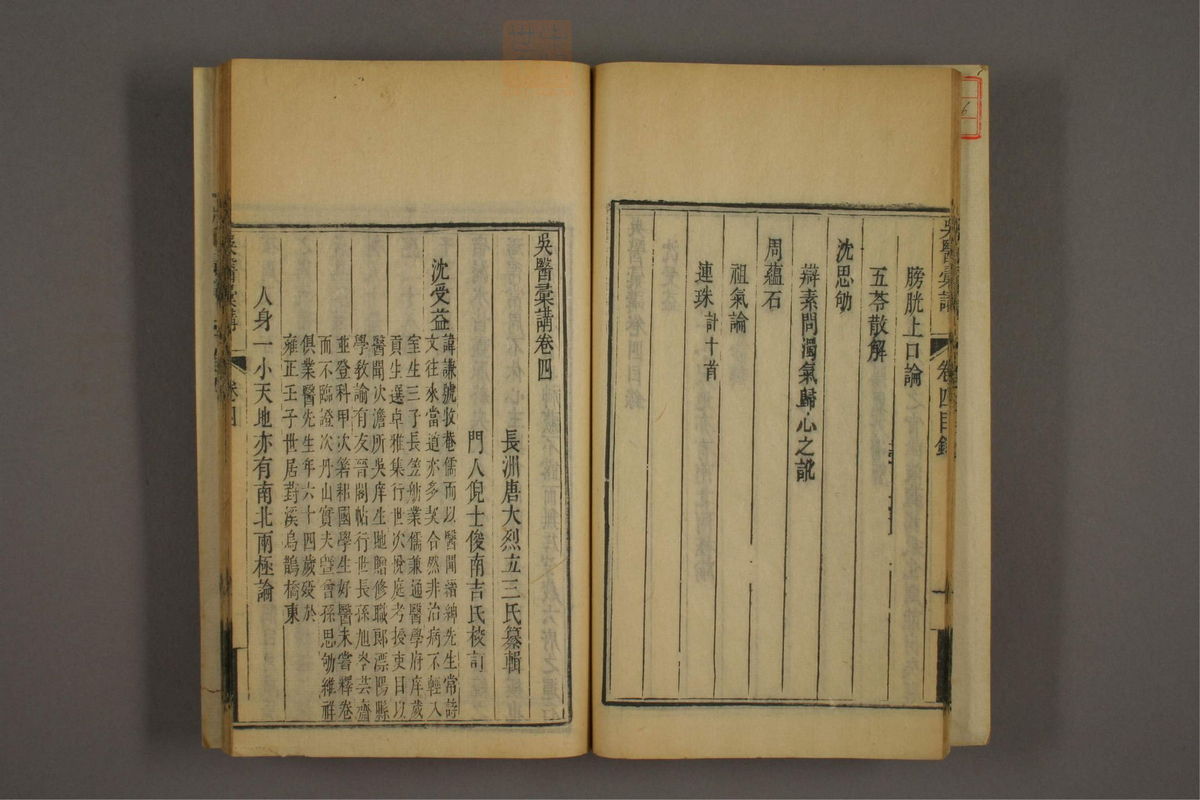 吳醫彙講
卷四目錄
膀胱上口論
五苓散解
沈思劬
辯素問濁氣歸心之訛
周蘊石
祖氣論
連珠計十首
吳醫彙講卷四
長洲唐大烈立三氏纂輯
門人倪士俊南吉氏校訂
沈受益
諱謙號牧菴儒而以醫聞縉紳先生常詩
文往來當道亦多契合然非治病不輕入
室生三子長笠舫業儒兼通醫學府庠歲
貢生選卓雅集行世次悅庭考授吏目以
醫聞次澹所吳庠生貤贈修職郎漂陽縣
學教諭有友晉閣帖行世長孫旭岑芸齋
並登科甲次箬邨國學生好醫未嘗釋卷
而不臨證次丹山實夫暨曾孫思劬維祥
俱業醫先生年六十四歲殁於
雍正壬子世居葑溪烏鵲橋東
人身一小天地亦有南北兩極論
吳醫彙講
卷四